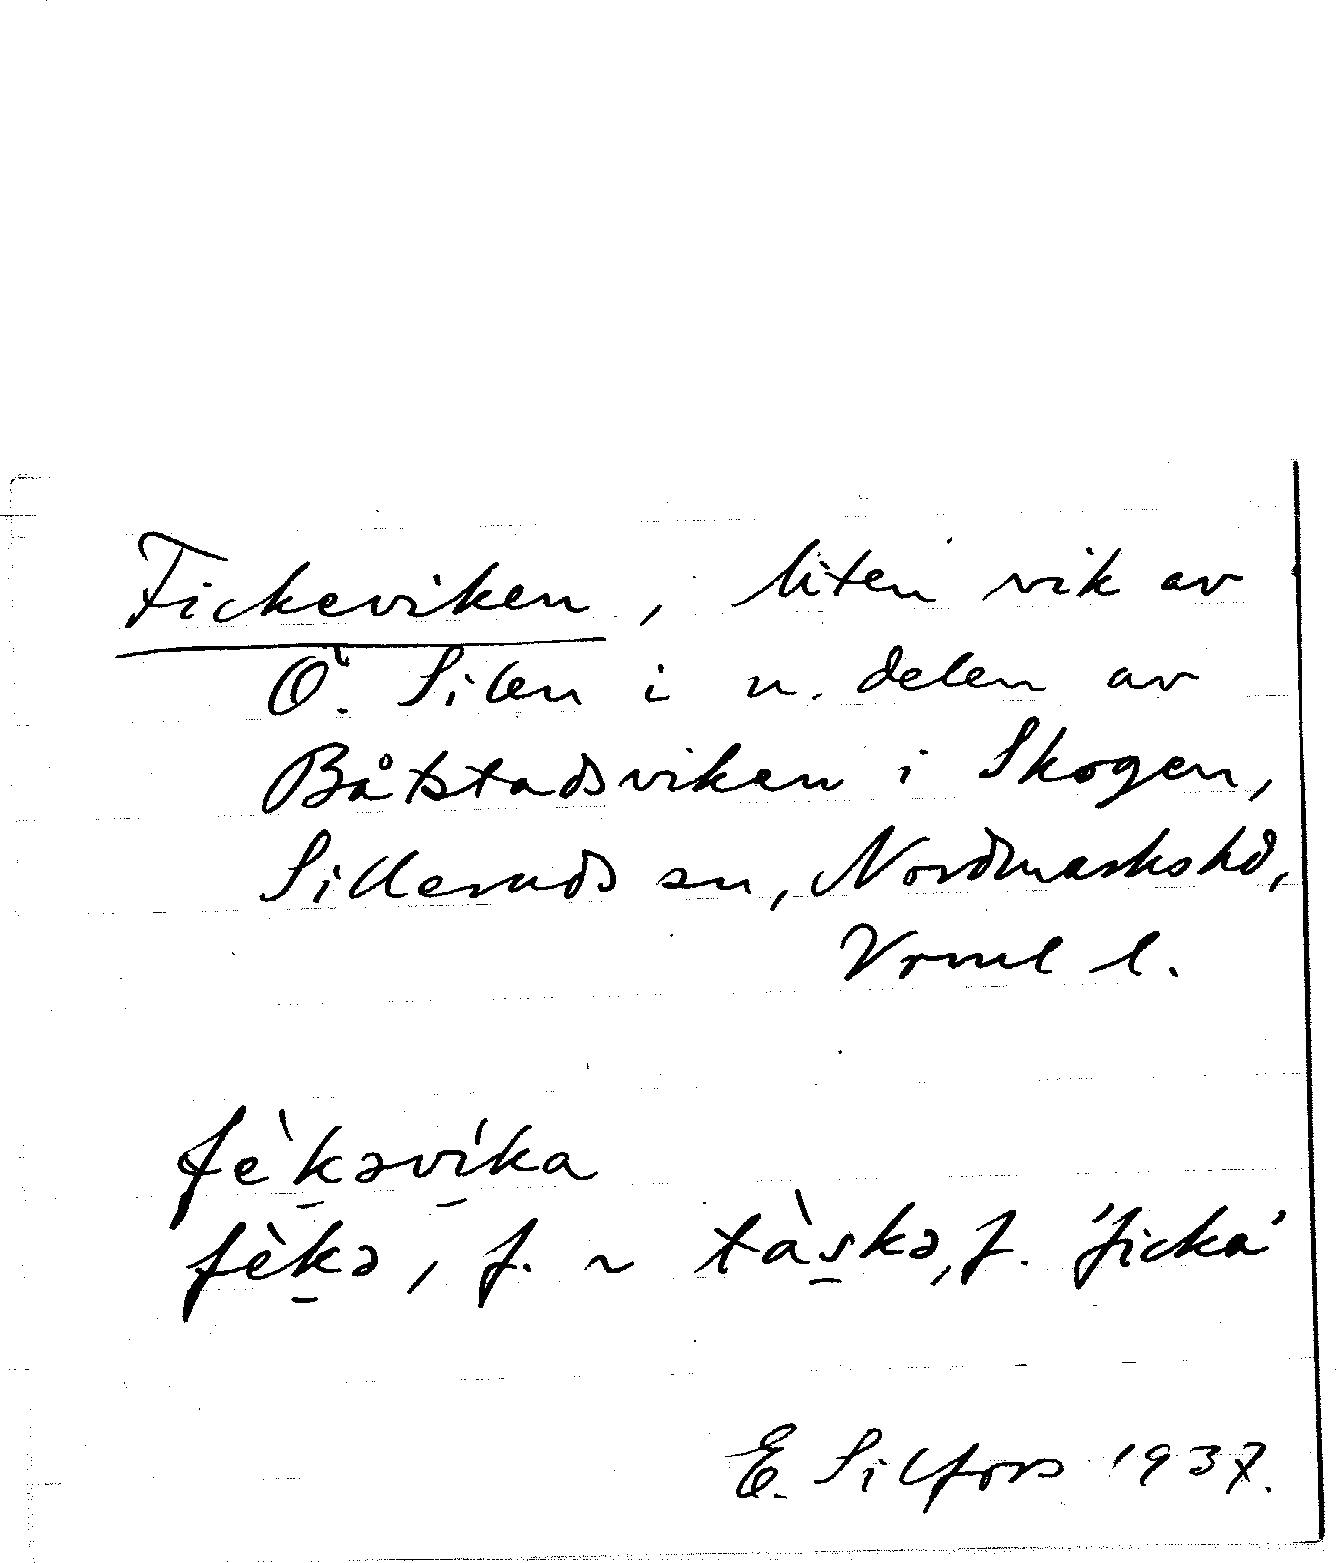 Fickeviken, liten vik av
Ö. Silen i n. delen av
Båtstadsviken i Skogen,
Silleruds sn, Nordmarkshd,
Vrml l.
fèk̠əví̠ka
fèk̠ə, f. ~ tàs̠kə, f. 'ficka'
E. Silfors 1937.